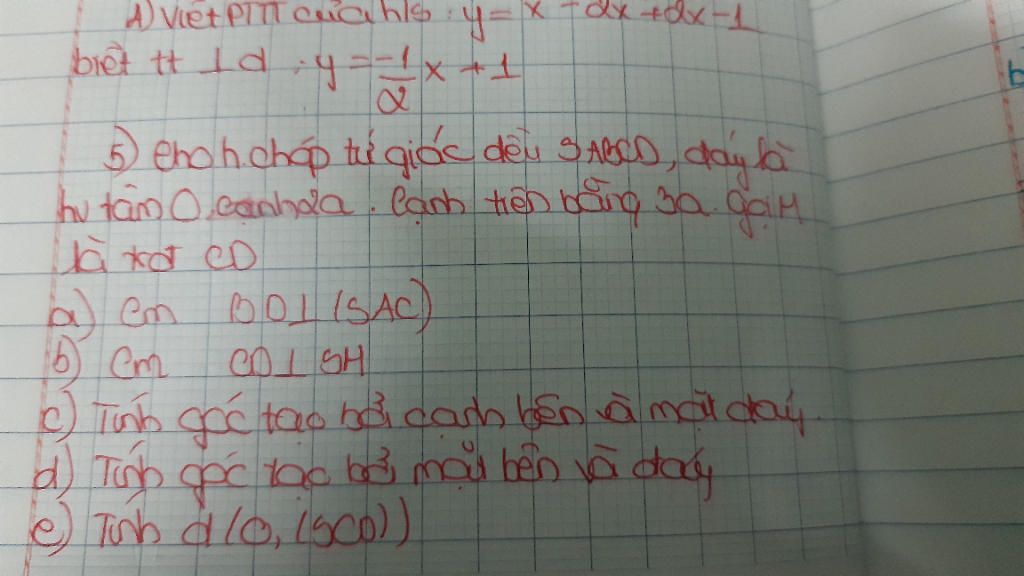 1) Viết PTTT của hs : y = x - 2x + 2x - 1
biết tt ⊥ d : y = -1/2 x + 1
5) cho h.chóp tứ giác đều SABCD, đáy là
hv tâm O, cạnh 2a. Cạnh bên bằng 3a. gọi H
là tđ CD
a) Cm BD ⊥ (SAC)
b) Cm CD ⊥ SH
c) Tính góc tạo bởi cạnh bên và mặt đáy.
d) Tính góc tạo bởi mặt bên và đáy
e) Tính d (O, (SCD))
b